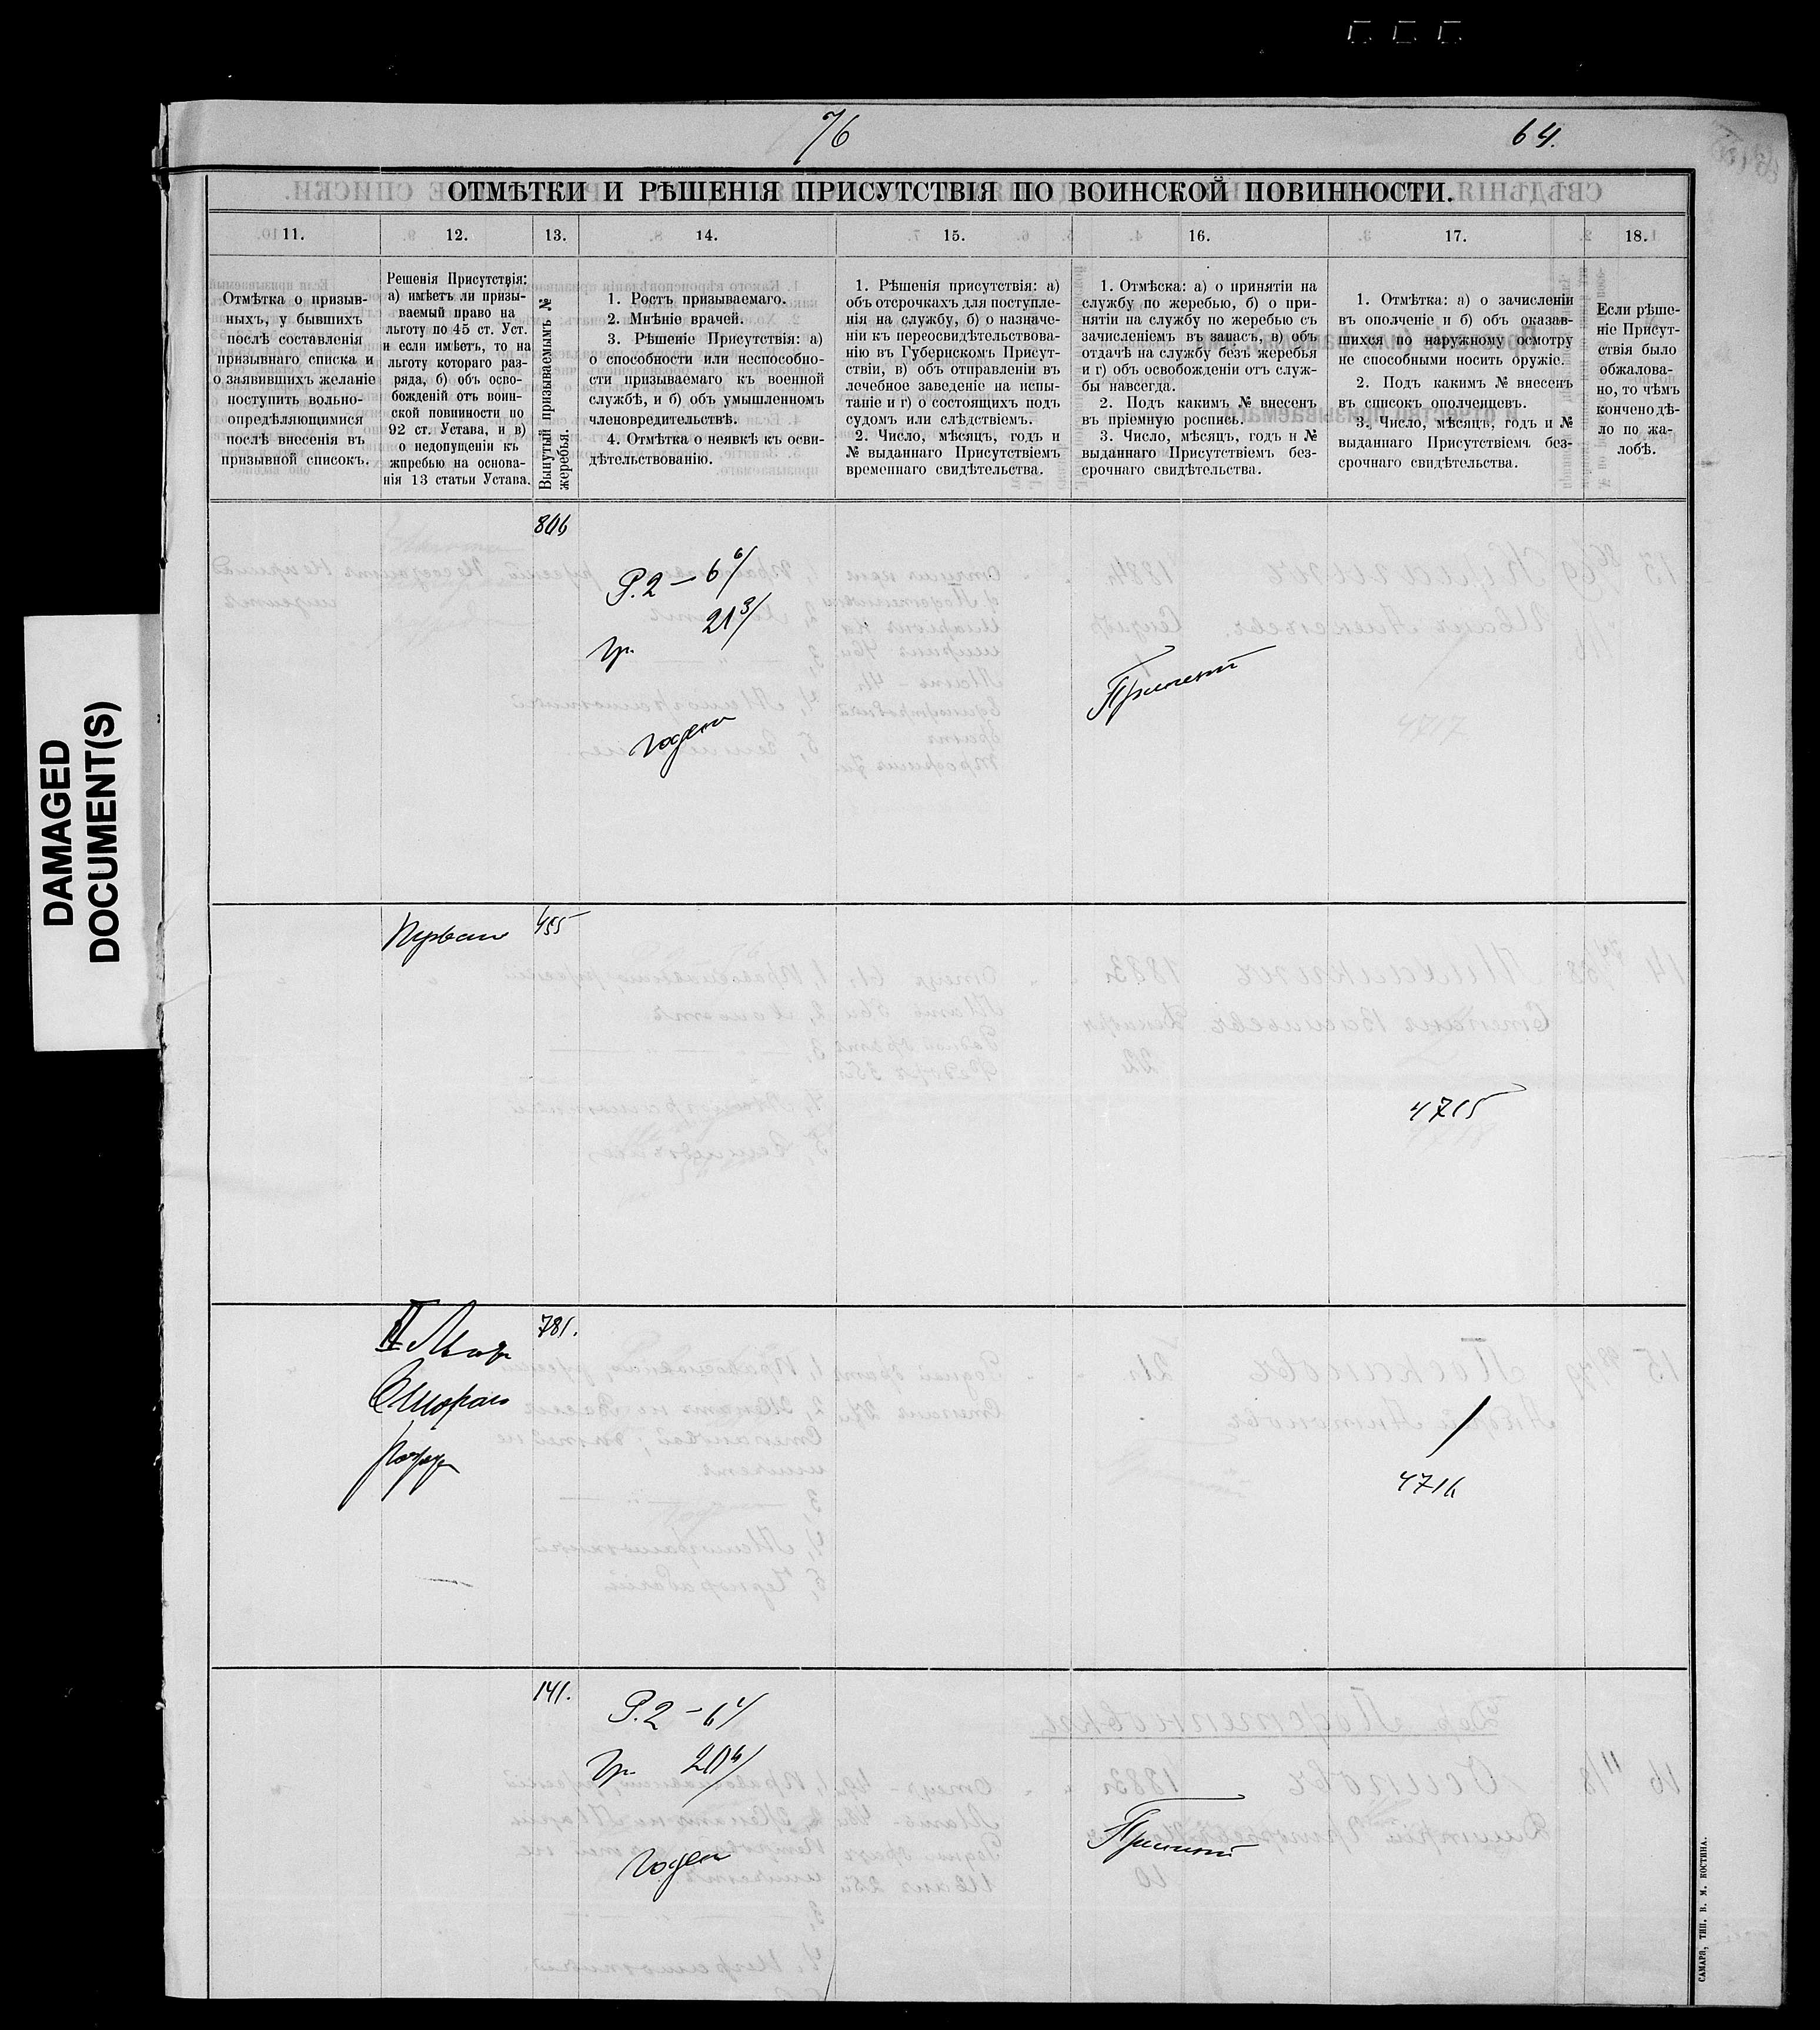 76
64.
ОТМѢТКИ И РѢШЕНІЯ ПРИСУТСТВІЯ ПО ВОИНСКОЙ ПОВИННОСТИ.
11. 12. 13. 14. 15. 16. 17. 18.
Отмѣтка о призыв-
ныхъ, у бывшихъ
послѣ составленія
призывнаго списка и
о заявившихъ желаніе
поступить вольно-
опредѣляющимися
послѣ внесенія въ
призывной списокъ.
Решенія Присутствія:
а) имѣетъ ли призы-
ваемый право на
льготу по 45 ст. Уст.
и если имѣетъ, то на
льготу котораго раз-
ряда, б) объ осво-
божденій отъ воин-
ской повинности по
92 ст. Устава, и в)
о недопущеніи къ
жпребью на основа-
нія 13 статьи Устава.
Вынутый призываемымъ №
жеребья.
1. Ростъ призываемаго.
2. Мнѣніе врачей.
3. Рѣшеніе Присутствія: а)
о способности или неспособно-
сти призываемаго къ военной
службѣ, и б) объ умышленномъ
членовредительствѣ.
4. Отмѣтка о неявкѣ къ осви-
дѣтельствованію.
1. Рѣшенія присутствія: а)
объ отсрочкахъ для поступле-
нія на службу, б) о назначе-
ніи къ переосвидѣтельствова-
нію въ Губернскомъ Присут-
ствіи, в) объ отправленіи въ
лечебное заведеніе на испы-
таніе и г) о состоящихъ подъ
судомъ или слѣдствіемъ.
2. Число, мѣсяцъ, годъ и
№ выданнаго Присутствіемъ
временнаго свидѣтельства.
1. Отмѣска: а) о принятіи на
службу по жеребью, б) о при-
нятіи на службу по жеребью съ
зачисленіемъ въ запасъ, в) объ
отдачѣ на службу безъ жеребья
и г) объ освобожденіи отъ служ-
бы навсегда.
2. Подъ какимъ № внесенъ
въ пріемную роспись.
3. Число, мѣсяцъ, годъ и №
выданнаго Присутствіемъ без-
срочнаго свидѣтельства.
1. Отмѣтка: а) о зачисленіи
въ ополченіе и б) объ оказав-
шихся по наружному осмотру
не способными носить оружіе.
2. Подъ какимъ № внесенъ
въ списокъ ополченцевъ.
3. Число, мѣсяцъ, годъ и №
выданнаго Присутствіемъ без-
срочнаго свидѣтельства.
Если рѣше-
ніе Присут-
ствія было
обжалова-
но, то чѣмъ
кончено дѣ-
ло по жа-
лобѣ.
806
Р. 2 – 6 6/
Гр. 21 3/
годен
Принят
455
4715
781.
II
4716
141.
Р. 2 – 6 4/
Гр. 20 4/
годен
Принят
DAMAGED
DOCUMENT(S)
САМАРА, ТИП. В. М. КОСТИНА.